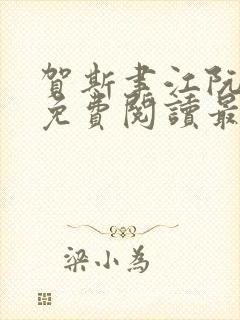 賀斯聿江阮
免費閱讀最
梁小為